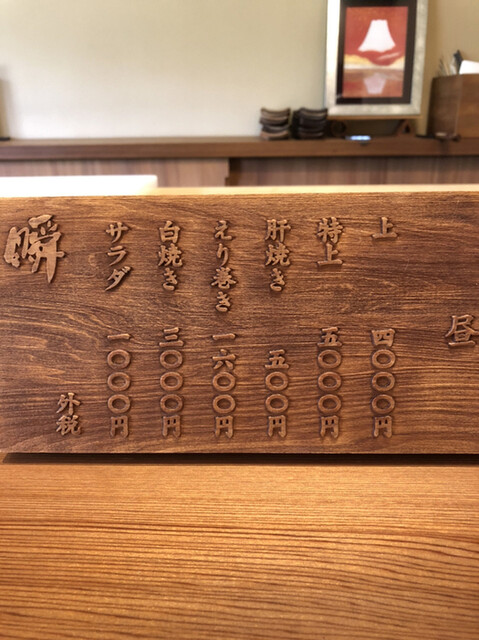 昼
上 四〇〇〇円
特上 五〇〇〇円
肝焼き 五〇〇円
えり巻き 一六〇〇円
白焼き 三〇〇〇円
サラダ 一〇〇〇円
外税
瞬